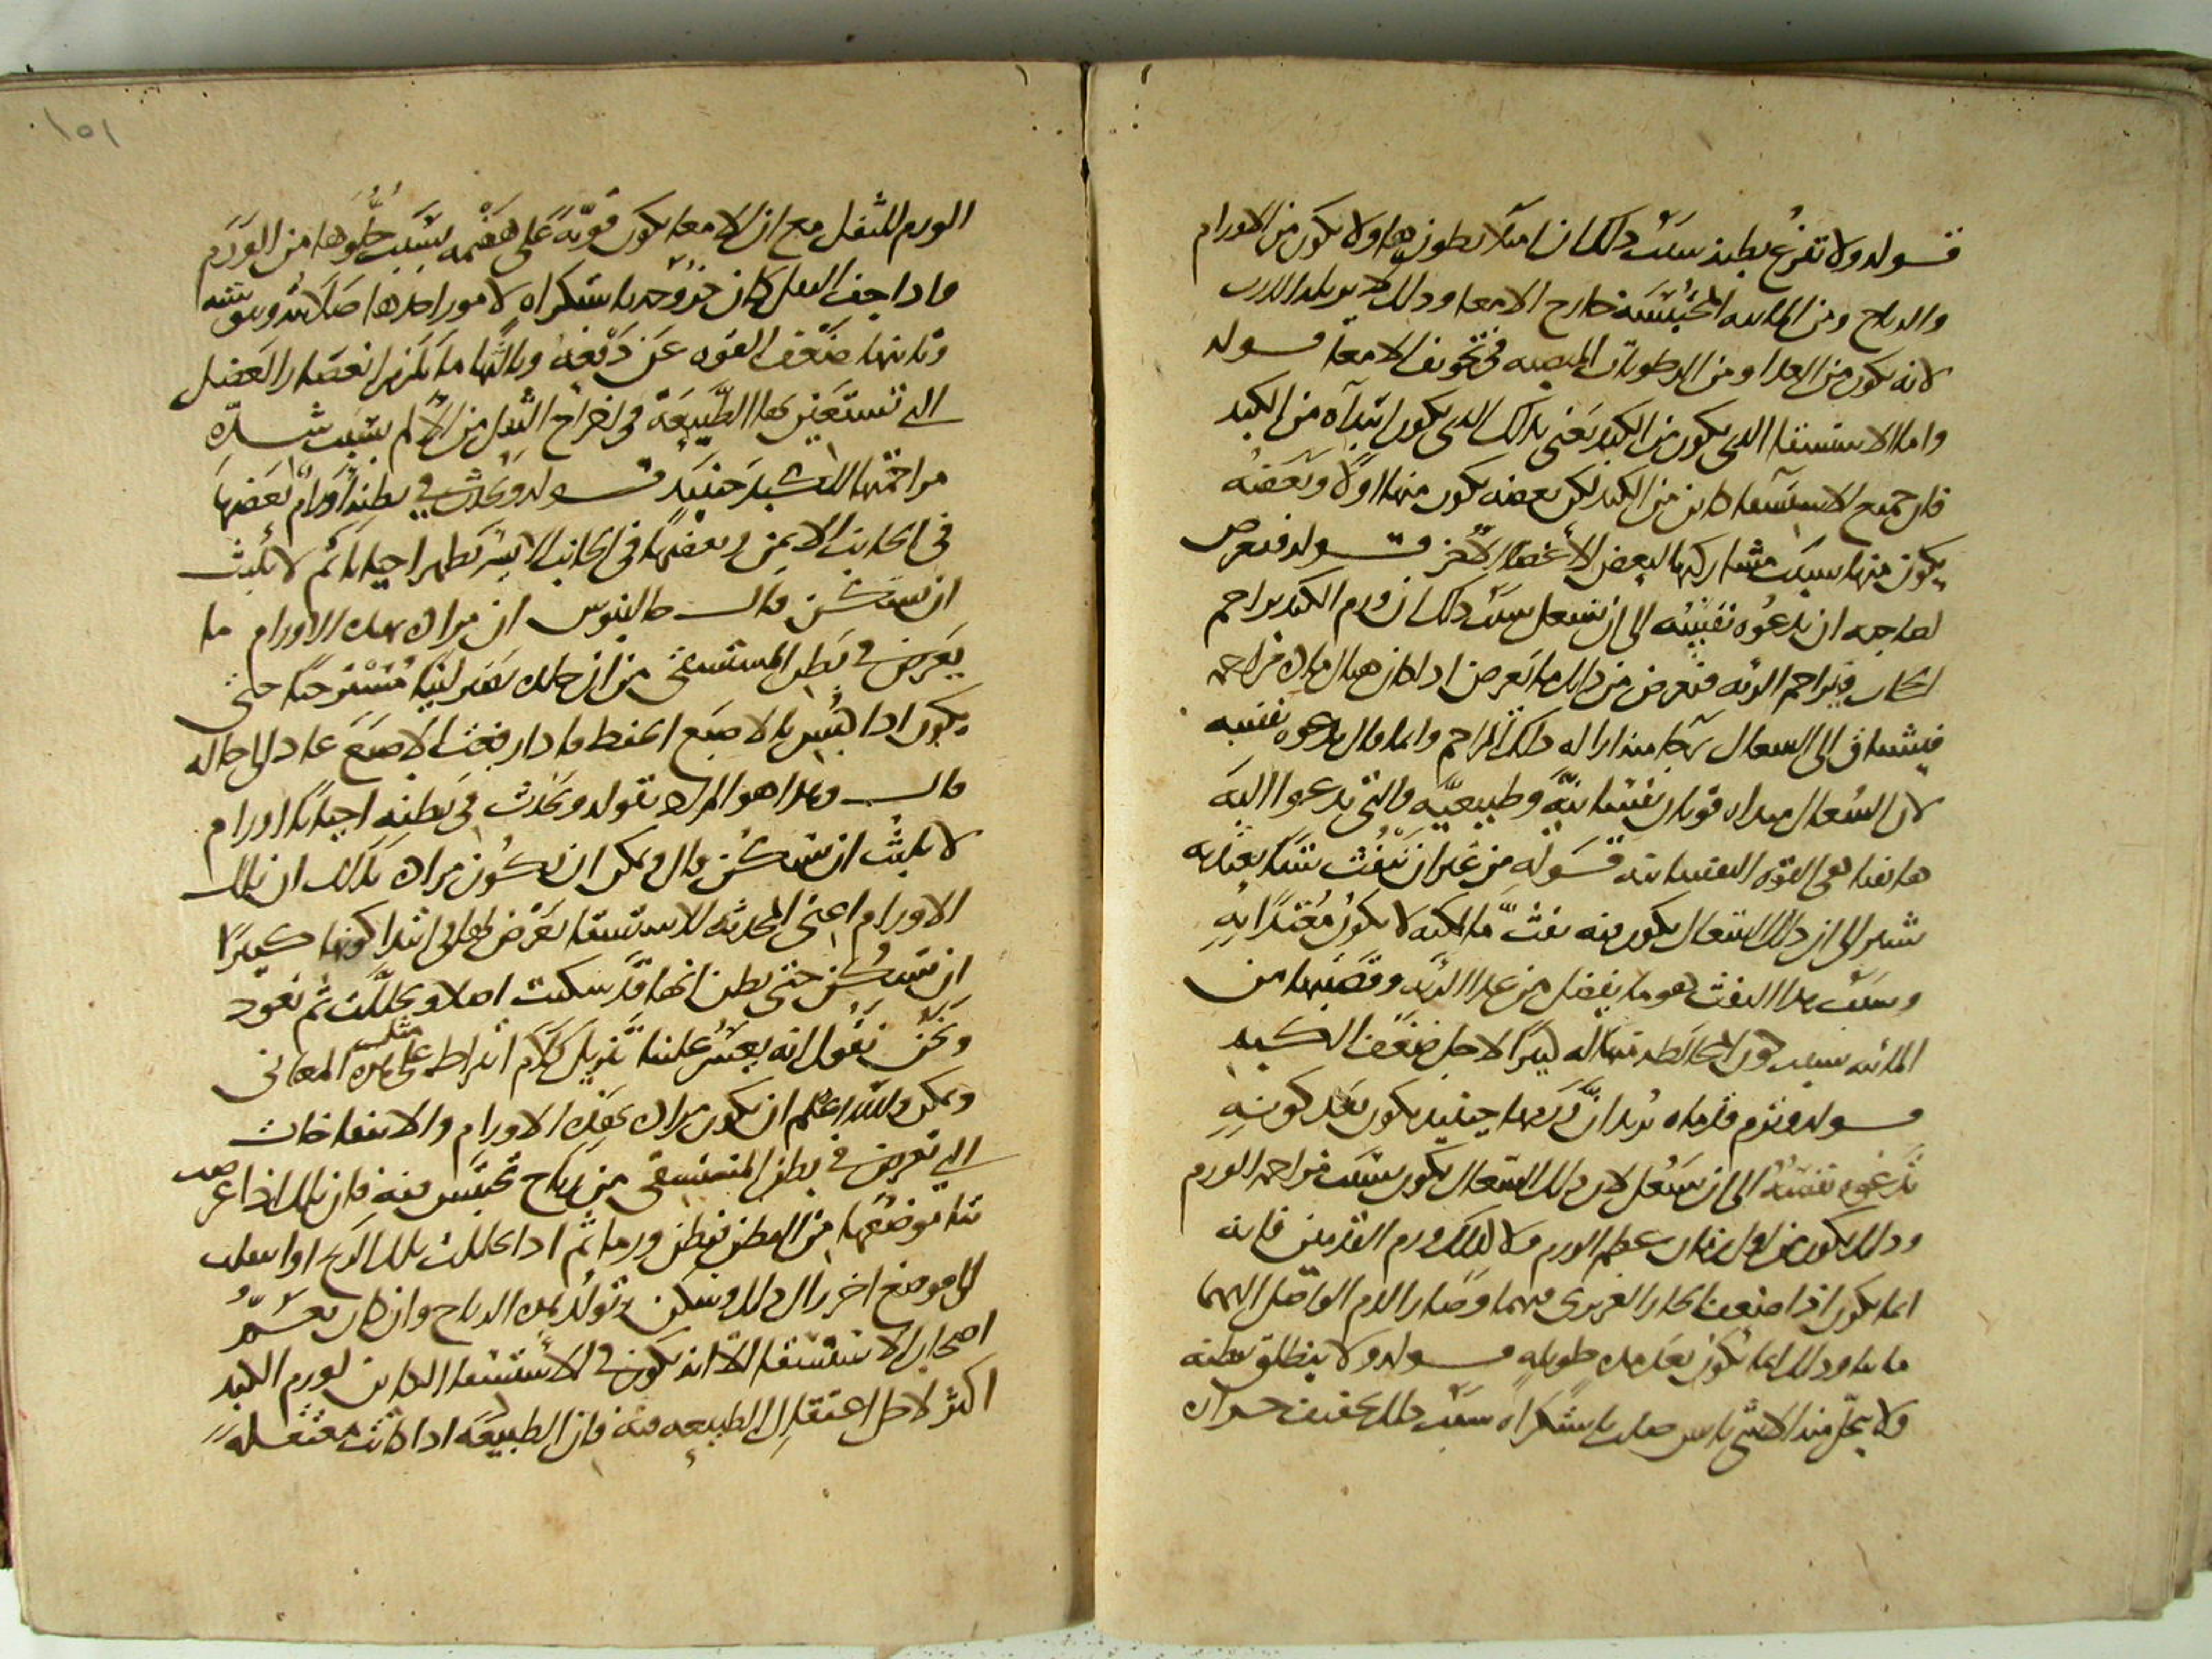 قوله ولا تفرغ بطنه سبب ذلك ان امتلا بطون هولا يكون من الاورام
والرياح ومن المائيه المحتبسه خارج الامعا وذلك لا يزيله الذرب
لانه يكون من الغذا ومن الرطوبات المنصبه في تجويف الامعا قوله
واما الاستسقا الذي يكون من الكبد يعني بذلك الذي يكون ابتداه من الكبد
فان جميع الاستسقا كاين من الكبد لكن بعضه يكون منها اولا وبعضه
يكون منها بسبب مشاركتها لبعض الاعضا الاخر قوله فيعرض
لصاحبه ان تدعوه نفسه الى ان يسعل سبب ذلك ان ورم الكبد يزاحم
الحجاب فيزاحم الريه فيعرض من ذلك ما يعرض اذا كان هناك ماده مزاحمه
فيشتاق الى السعال كما منه ازاله ذلك المزاحم وانما قال تدعوه نفسه
لان السعال مبداه قوتان نفسانيه وطبيعيه والتي تدعوا اليه
هاهنا هي القوه النفسانيه قوله من غير ان ينفث شيا يعتد به
يشير الى ان ذلك السعال يكون فيه نفث ما لكنه لا يكون معتدا به
وسبب هذا النفث هو ما يفضل من غذا الريه وقصبتها من
المائيه بسبب كون الدم المخالط فيها له كثيرا لاجل ضعف الكبد
قوله وترم قدماه يريد ان ورمهما حينيذ يكون بعد كونه
تدعوه نفسه الى ان يسعل لان ذلك السعال يكون بسبب مزاحمه الورم
وذلك يكون من اول زمان عظم الورم ولا كذلك ورم القدمين فانه
انما يكون اذا ضعف الحار الغريزي فيهما وصار الدم الواصل اليهما
مائيا وذلك انما يكون بعد مده طويله قوله ولا ينطلق بطنه
ولا يخرج منه الا شي يابس صلب باستكراه سبب ذلك تجفيف حراره
الورم للثفل مع ان الامعا يكون قويه على هضمه بسبب خلوها من الورم
واذا جف الثفل كان خروجه باستكراه لامور احدها صلابته ويبوسته
وثانيها ضعف القوه عن دفعه وثالثها ما يلزم انعصار العضل
التي تستعين بها الطبيعه في اخراج الثفل من الالم بسبب شده
مزاحمتها للكبد حينيذ قوله ويحدث في بطنه اورام بعضها
في الجانب الايمن وبعضها في الجانب الايسر تظهر احيانا ثم لا تلبث
ان تسكن قال جالينوس ان مراده بهذه الاورام ما
يعرض في بطن المستسقي من ان جلده يصير لينا مسترخيا حتى
يكون اذا كبس بالاصبع انضغط فاذا رفعت الاصبع عاد الى حاله
قال وهذا هو المراد بقوله ويحدث في بطنه احيانا اورام
لا تلبث ان تسكن قال ويمكن ان يكون مراده بذلك ان تلك
الاورام اعني المحدثه للاستسقا يعرض لها في ابتدا كونها كثيرا
ان تسكن حتى يظن انها قد سكنت اصلا وتحللت ثم تعود
ونحن نقول انه يعسر علينا تنزيل كلام ابقراط على مثل هذه المعاني
ويمكن والله اعلم ان يكون مراده بهذه الاورام والانتفاخات
التي تعرض في بطن المستسقي من رياح تحتبس فيه فان تلك اذا عرضت
نتا موضعها من البطن فيظن ورما ثم اذا تحللت تلك الريح او انتقلت
الى موضع اخر زال ذلك وسكن وتولد هذه الرياح وان كان يعم
اصحاب الاستسقا الا انه يكون في الاستسقا الكاين لورم الكبد
اكثر لاجل اعتقال الطبيعه فيه فان الطبيعه اذا كانت معتقله
١٥١